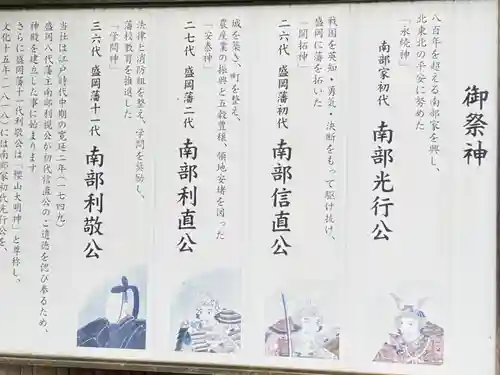 御祭神
八百年を超える南部家を興し、
北東北の平安に努めた
「永続神」
南部家初代 南部光行公
戦国を英知・勇気・決断をもって駆け抜け、
盛岡に藩を拓いた
「開拓神」
二六代 盛岡藩初代 南部信直公
城を築き、町を整え、
農産業の振興と五穀豊穣、領地安堵を図った
「安泰神」
二七代 盛岡藩二代 南部利直公
法律と消防組を整え、学問を奨励し、
藩校教育を推進した
「学問神」
三六代 盛岡藩十一代 南部利敬公
当社は江戸時代中期の寛延二年(一七四九)
盛岡八代藩主南部利視公が初代信直公のご遺徳を偲び奉るため、
神殿を建立した事に始まります
さらに盛岡藩十一代利敬公は「櫻山大明神」と尊称し、
文化十五年(一八一八)には南部家初代光行公を、